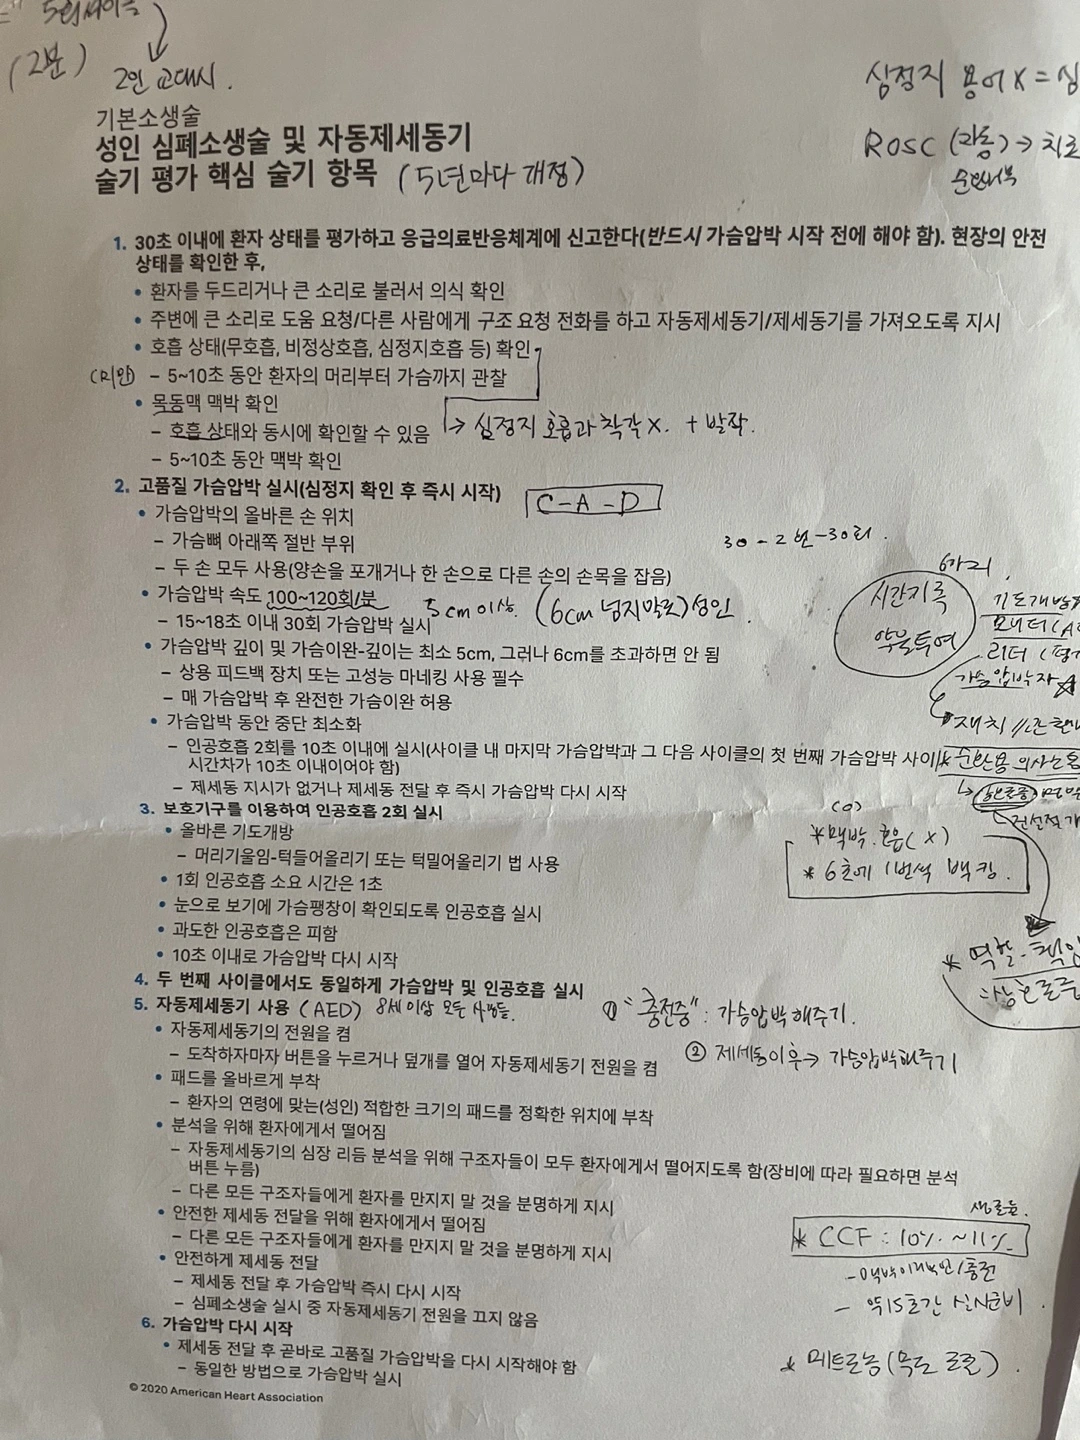 5회사이클
(2분)
2인 교대시.
심정지 용어 X =
ROSC (자동) →
기본소생술
성인 심폐소생술 및 자동제세동기
술기 평가 핵심 술기 항목 (5년마다 개정)
1. 30초 이내에 환자 상태를 평가하고 응급의료반응체계에 신고한다(반드시 가슴압박 시작 전에 해야 함). 현장의 안전
상태를 확인한 후,
• 환자를 두드리거나 큰 소리로 불러서 의식 확인
• 주변에 큰 소리로 도움 요청/다른 사람에게 구조 요청 전화를 하고 자동제세동기/제세동기를 가져오도록 지시
• 호흡 상태(무호흡, 비정상호흡, 심정지호흡 등) 확인
(미만) – 5~10초 동안 환자의 머리부터 가슴까지 관찰
• 목동맥 맥박 확인
→ 심정지 호흡과 착각 X. + 발작.
– 호흡 상태와 동시에 확인할 수 있음
– 5~10초 동안 맥박 확인
2. 고품질 가슴압박 실시(심정지 확인 후 즉시 시작) C-A-D
• 가슴압박의 올바른 손 위치
– 가슴뼈 아래쪽 절반 부위
30 - 2번 - 30회.
– 두 손 모두 사용(양손을 포개거나 한 손으로 다른 손의 손목을 잡음)
• 가슴압박 속도 100~120회/분 5cm 이상. (6cm 넘지말로) 성인.
– 15~18초 이내 30회 가슴압박 실시
시간기록
약물투여
가슴압박자
• 가슴압박 깊이 및 가슴이완-깊이는 최소 5cm, 그러나 6cm를 초과하면 안 됨
– 상용 피드백 장치 또는 고성능 마네킹 사용 필수
– 매 가슴압박 후 완전한 가슴이완 허용
• 가슴압박 동안 중단 최소화
– 인공호흡 2회를 10초 이내에 실시(사이클 내 마지막 가슴압박과 그 다음 사이클의 첫 번째 가슴압박 사이
시간차가 10초 이내이어야 함)
– 제세동 지시가 없거나 제세동 전달 후 즉시 가슴압박 다시 시작
3. 보호기구를 이용하여 인공호흡 2회 실시
(O)
* 맥박. 호흡(X)
* 6초에 1번씩 백킹.
• 올바른 기도개방
– 머리기울임-턱들어올리기 또는 턱밀어올리기 법 사용
• 1회 인공호흡 소요 시간은 1초
• 눈으로 보기에 가슴팽창이 확인되도록 인공호흡 실시
• 과도한 인공호흡은 피함
• 10초 이내로 가슴압박 다시 시작
* 역할-책임
4. 두 번째 사이클에서도 동일하게 가슴압박 및 인공호흡 실시
5. 자동제세동기 사용 (AED) 8세 이상 모든 사람들.
① "충전중" : 가슴압박 해주기.
• 자동제세동기의 전원을 켬
② 제세동이후 → 가슴압박해주기
– 도착하자마자 버튼을 누르거나 덮개를 열어 자동제세동기 전원을 켬
• 패드를 올바르게 부착
– 환자의 연령에 맞는(성인) 적합한 크기의 패드를 정확한 위치에 부착
• 분석을 위해 환자에게서 떨어짐
– 자동제세동기의 심장 리듬 분석을 위해 구조자들이 모두 환자에게서 떨어지도록 함(장비에 따라 필요하면 분석
버튼 누름)
– 다른 모든 구조자들에게 환자를 만지지 말 것을 분명하게 지시
• 안전한 제세동 전달을 위해 환자에게서 떨어짐
– 다른 모든 구조자들에게 환자를 만지지 말 것을 분명하게 지시
* CCF : 10% ~11%
• 안전하게 제세동 전달
– 제세동 전달 후 가슴압박 즉시 다시 시작
– 심폐소생술 실시 중 자동제세동기 전원을 끄지 않음
- 약15초간
6. 가슴압박 다시 시작
• 제세동 전달 후 곧바로 고품질 가슴압박을 다시 시작해야 함
– 동일한 방법으로 가슴압박 실시
* 메트로놈
© 2020 American Heart Association